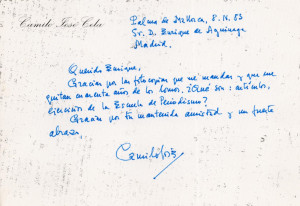 Camilo José Cela
Palma de Mallorca, 8.IV.83
Sr. D. Enrique de Aguinaga
Madrid.
Querido Enrique,
Gracias por las fotocopias que me mandas y que me
quitan cuarenta años de los lomos. ¿Qué son: artículos,
ejercicios de la Escuela de Periodismo?
Gracias por tu mantenida amistad y un fuerte
abrazo,
Camilo José